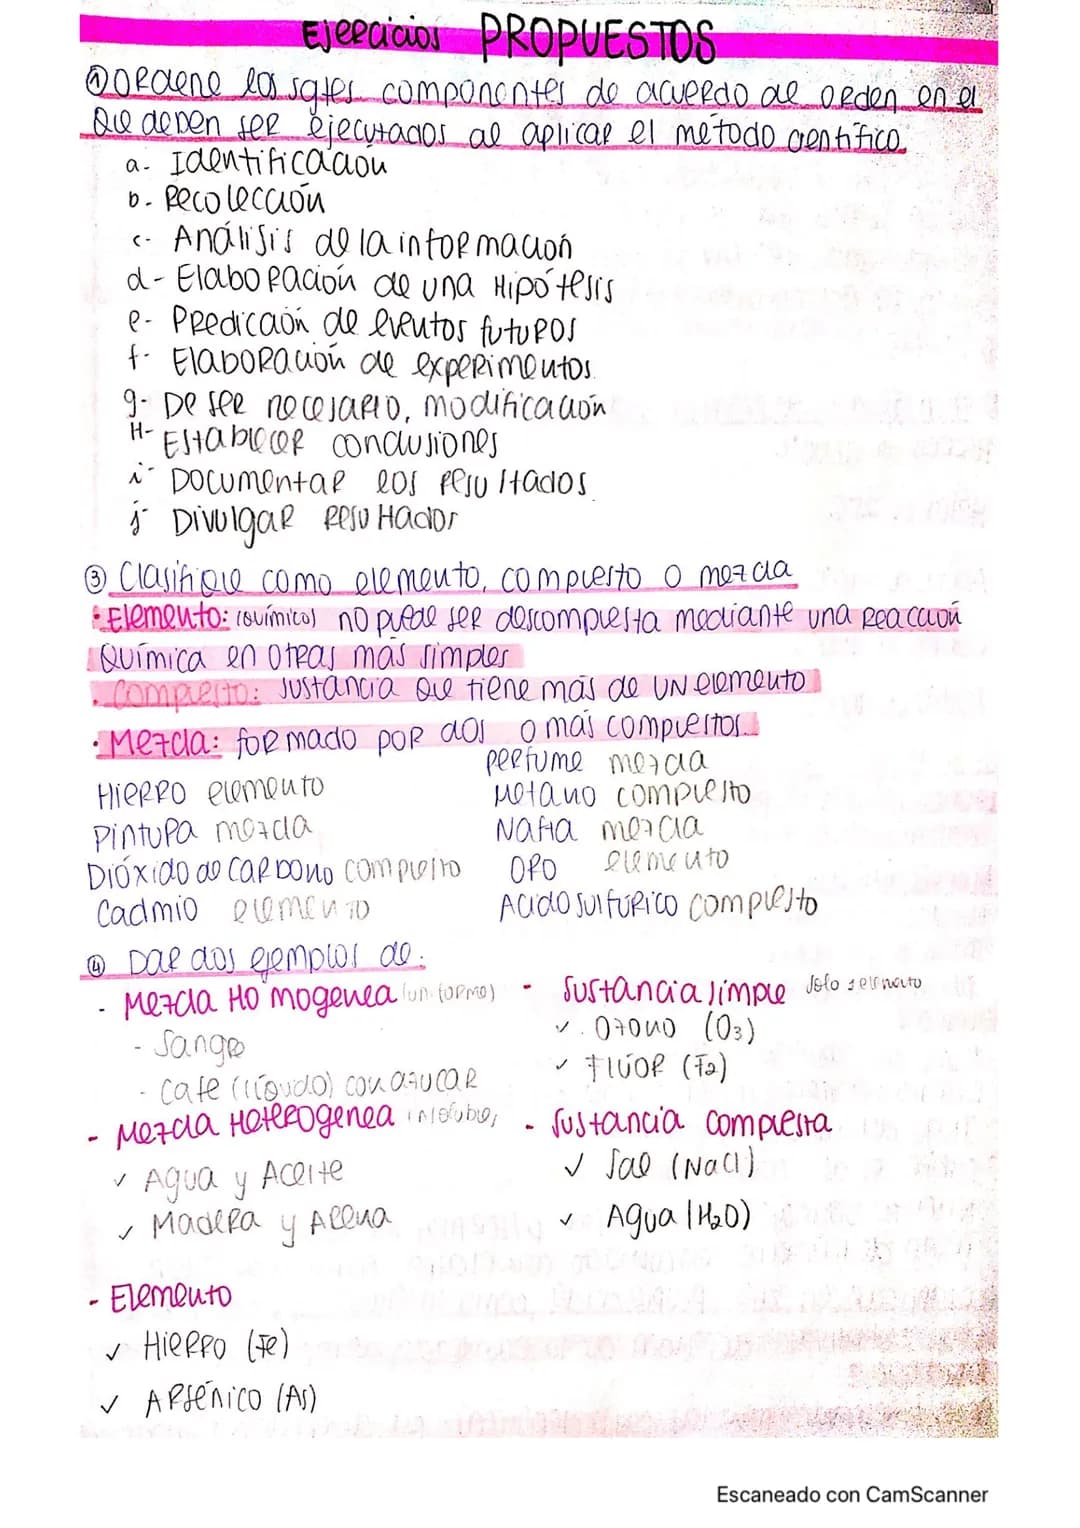 Ejercicios PROPUESTOS
① Ordene los sgtes componentes de acuerdo al orden en el
que deben ser ejecutados al aplicar el método científico.
a- Identificación
b- Recolección
c- Análisis de la información
d- Elaboración de una Hipótesis
e- Predicción de eventos futuros
f- Elaboración de experimentos.
g- De ser necesario, modificación
H- Establecer conclusiones
i- Documentar los resultados.
j- Divulgar resultados
③ Clasifique como elemento, compuesto o mezcla
• Elemento: (químico) no puede ser descompuesta mediante una reacción
química en otras más simples
• Compuesto: sustancia que tiene más de un elemento
• Mezcla: formado por dos o más compuestos.
Hierro elemento
Pintura mezcla
Dióxido de carbono compuesto
Cadmio elemento
perfume mezcla
Metano compuesto
Nafta mezcla
Oro elemento
Acido sulfúrico compuesto
④ Dar dos ejemplos de:
- Mezcla Homogenea (uniforme)
- Sangre
- Cafe (líquido) con azucar
- Mezcla Heterogenea insolubles
✓ Agua y Aceite
✓ Madera y Arena
- Elemento
✓ Hierro (Fe)
✓ Arsénico (As)
- Sustancia simple solo 1 elemento
✓ Ozono (O₃)
✓ Flúor (F₂)
- Sustancia compuesta
✓ Sal (NaCl)
✓ Agua (H₂O)
Escaneado con CamScanner